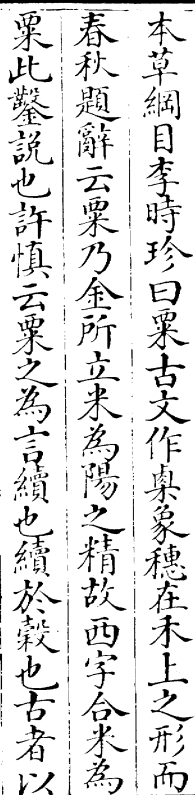 本草綱目李時珍曰粟古文作㮚象穗在禾上之形而
春秋題辭云粟乃金所立米為陽之精故西字合米為
粟此鑿説也許慎云粟之為言續也續於穀也古者以